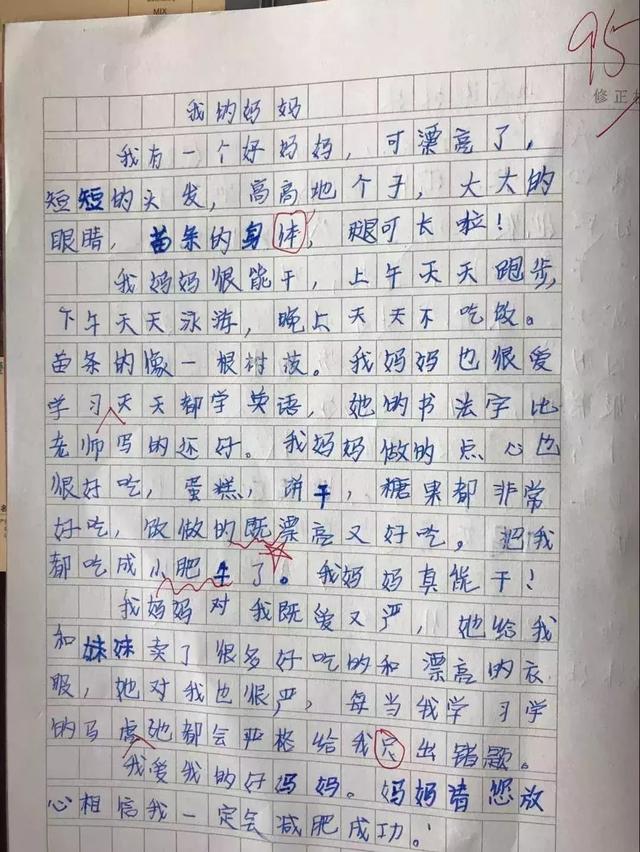 MIX
95
修正
我的妈妈
我有一个好妈妈，可漂亮了，
短短的头发，高高地个子，大大的
眼睛，苗条的身体，腿可长啦！
我妈妈很能干，上午天天跑步，
下午天天泳游，晚上天天不吃饭。
苗条的像一根树枝。我妈妈也很爱
学习天天都学英语，她的书法字比
老师写的还好。我妈妈做的点心也
很好吃，蛋糕，饼干，糖果都非常
好吃，饭做的既漂亮又好吃。把我
都吃成小肥牛了。我妈妈真能干！
我妈妈对我既爱又严，她给我
和妹妹卖了很多好吃的和漂亮的衣
服，她对我也很严，每当我学习学
的马虎她都会严格给我 出错题。
我爱我的好妈妈。妈妈请您放
心相信我一定会减肥成功。